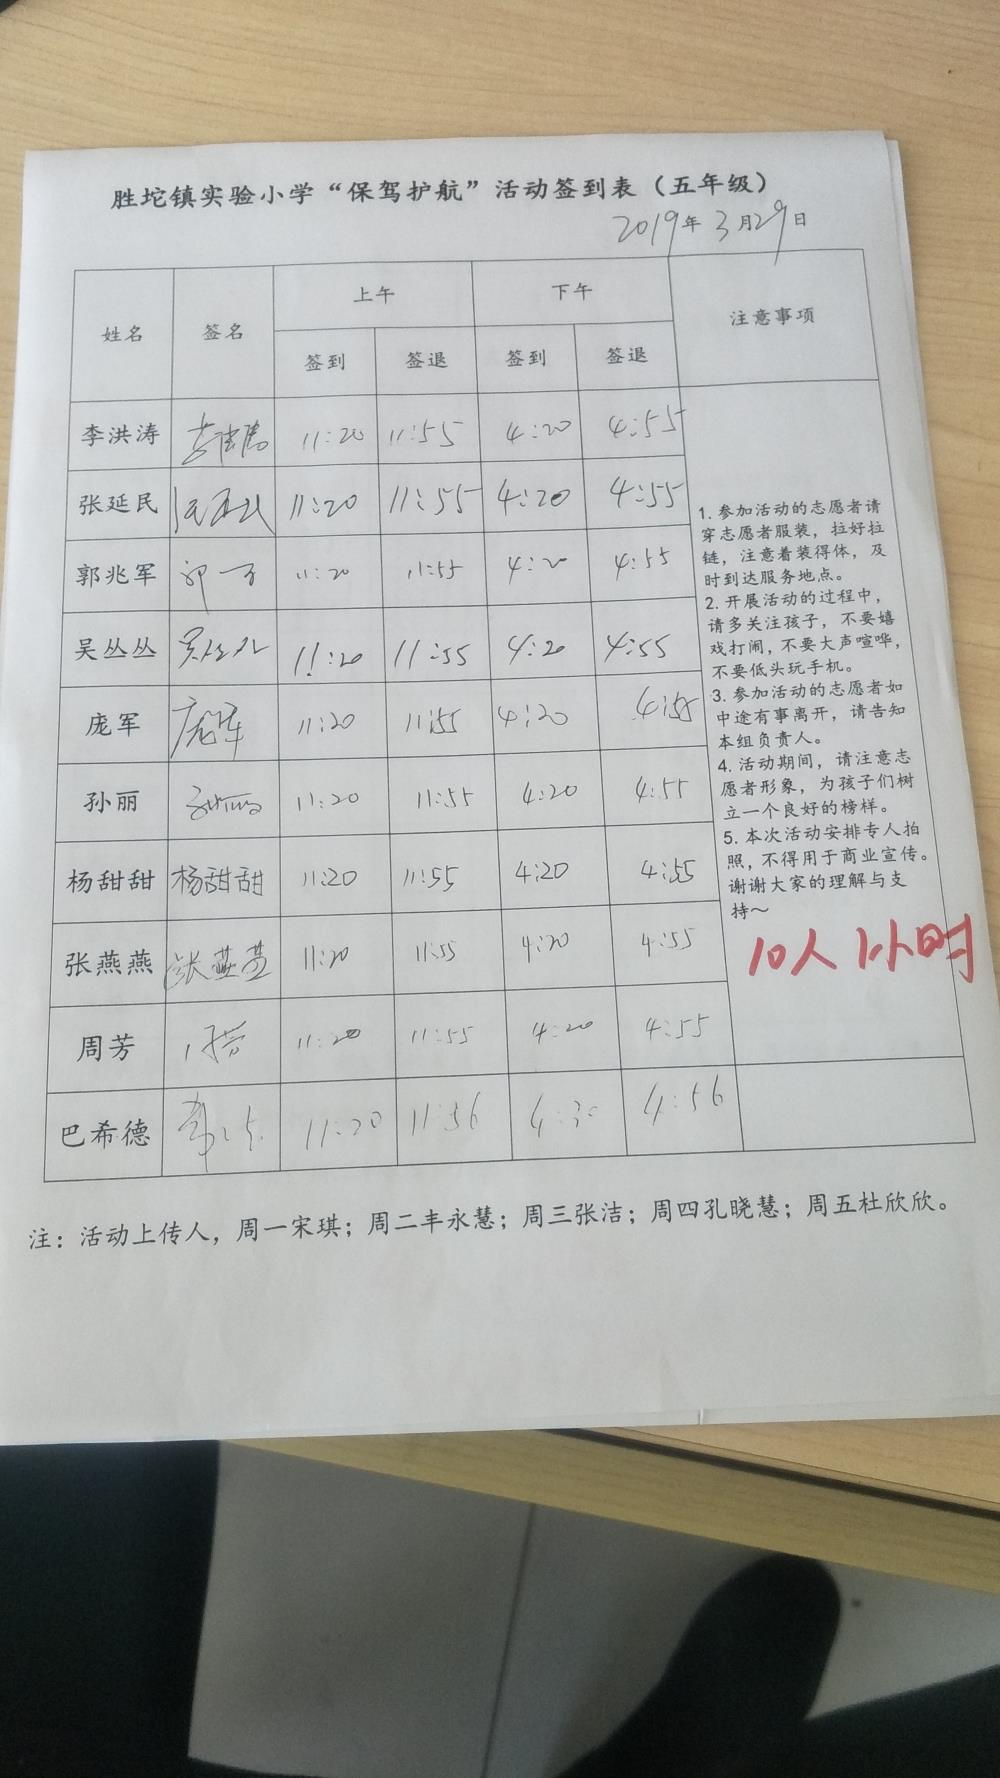 胜坨镇实验小学“保驾护航”活动签到表（五年级）
2019年 3月29日
姓名 签名 上午 下午 注意事项
签到 签退 签到 签退
李洪涛 11:20 11:55 4:20 4:55
张延民 11:20 11:55 4:20 4:55
郭兆军 11:20 11:55 4:20 4:55
吴丛丛 吴丛丛 11:20 11:55 4:20 4:55
庞军 庞军 11:20 11:55 4:20 4:55
孙丽 11:20 11:55 4:20 4:55
杨甜甜 杨甜甜 11:20 11:55 4:20 4:55
张燕燕 张燕燕 11:20 11:55 4:20 4:55
周芳 11:20 11:55 4:20 4:55
巴希德 11:20 11:56 4:30 4:56
1. 参加活动的志愿者请
穿志愿者服装，拉好拉
链，注意着装得体，及
时到达服务地点。
2. 开展活动的过程中，
请多关注孩子，不要嬉
戏打闹，不要大声喧哗，
不要低头玩手机。
3. 参加活动的志愿者如
中途有事离开，请告知
本组负责人。
4. 活动期间，请注意志
愿者形象，为孩子们树
立一个良好的榜样。
5. 本次活动安排专人拍
照，不得用于商业宣传。
谢谢大家的理解与支
持～
10人 1小时
注：活动上传人，周一宋琪；周二丰永慧；周三张洁；周四孔晓慧；周五杜欣欣。